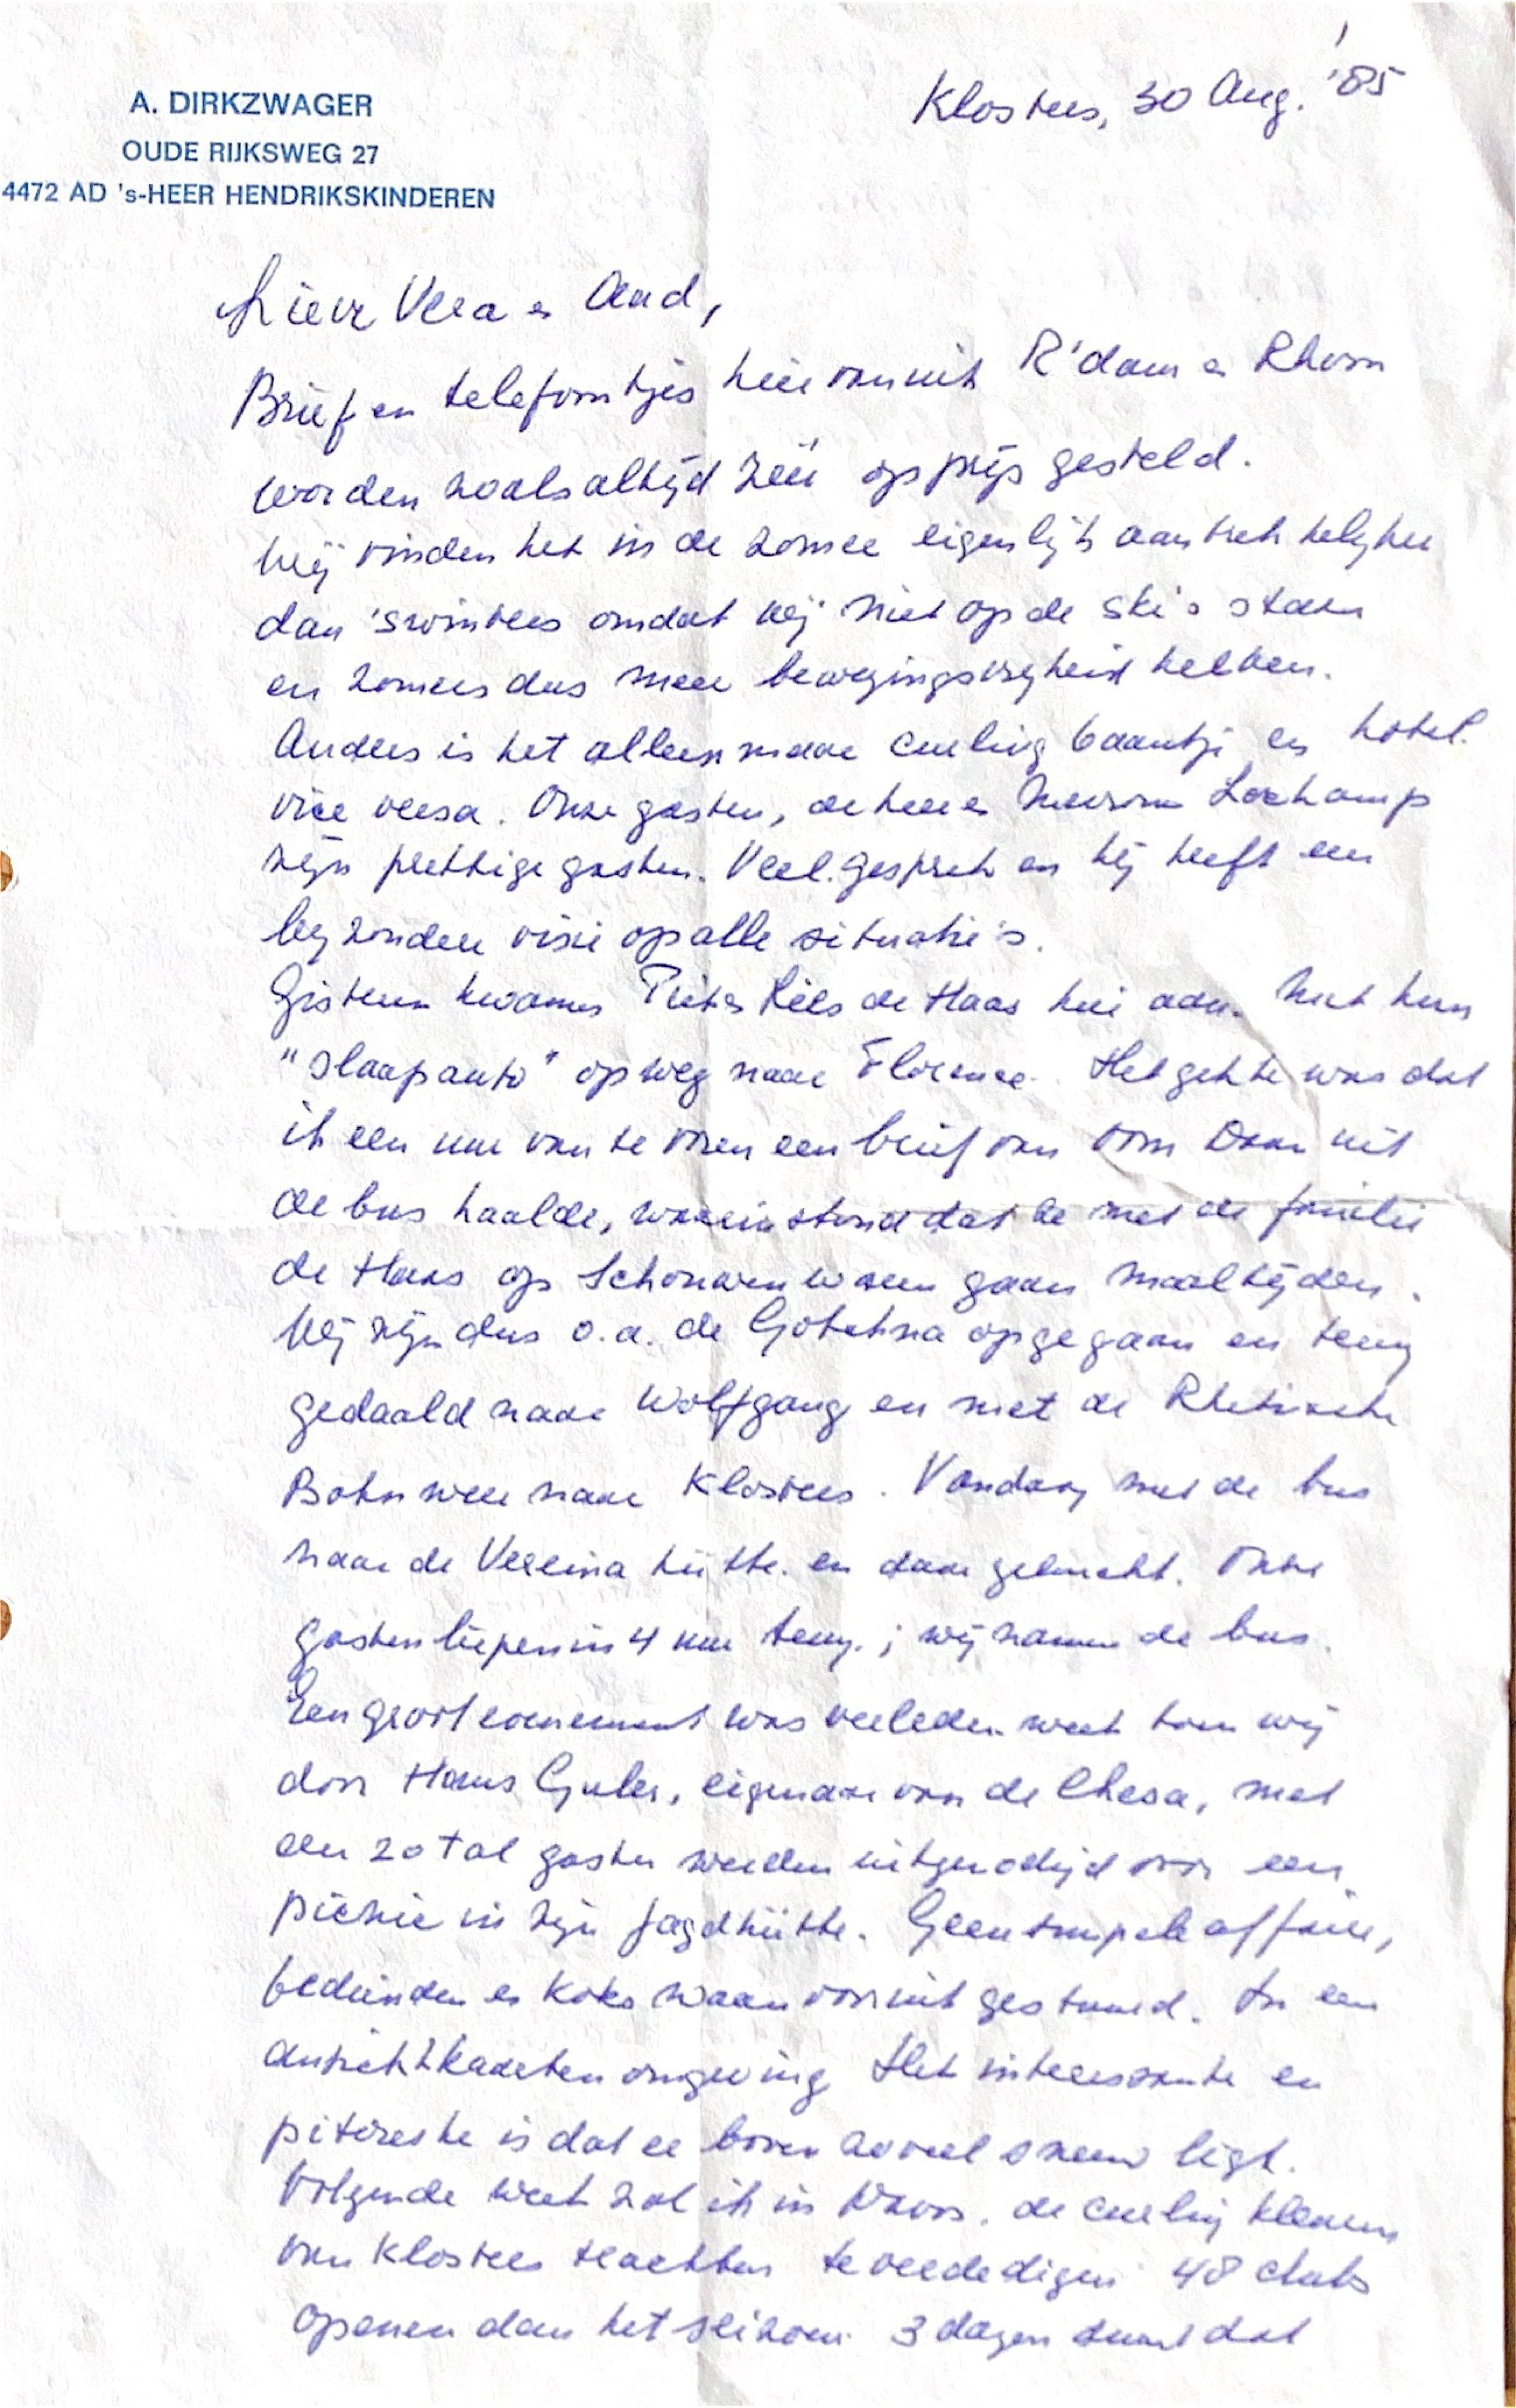 A. DIRKZWAGER
OUDE RIJKSWEG 27
4472 AD 's-HEER HENDRIKSKINDEREN
Klosters, 30 Aug. '85
Lieve Vera en Aad,
Brief en telefoontjes hier vanuit R'dam en Rhoon
worden zoals altijd zéér op prijs gesteld.
Wij vinden het in de zomer eigenlijk aantrekkelijker
dan 's winters omdat wij niet op de ski's staan
en zomers dus meer bewegingsvrijheid hebben.
Anders is het alleen maar curling baantje en hotel.
vice versa. Onze gasten, de heer en Mevrouw Lockamp
zijn prettige gasten. Veel gesprek en hij heeft een
bijzondere visie op alle situatie's.
Gisteren kwamen Piet en de Haas hier aan. Met hun
"slaapauto" op weg naar Florence. Het gekke was dat
ik een uur van te voren een brief van oom Daan uit
de bus haalde, waarin stond dat ze met de familie
de Haas op Schouwen waren gaan maaltijden.
Wij zijn dus o.a. de Gotschna opgegaan en terug
gedaald naar Wolfgang en met de Rhetische
Bahn weer naar Klosters. Vandaag met de bus
naar de Vereina hütte. en daar geluncht. Onze
gasten liepen in 4 uur terug.; wij namen de bus.
Een groot evenement was verleden week toen wij
door Hans Guler, eigenaar van de Chesa, met
een 20 tal gasten werden uitgenodigd voor een
picnic in zijn Jagdhütte. Geen simpele affaire,
bedienden en koks waren vooruit gestuurd. In een
ansichtkaarten omgeving Het interessante en
pitoreske is dat er boven zoveel sneeuw ligt.
Volgende week zal ik in Davos. de curling kleuren
van Klosters trachten te verdedigen 48 clubs
openen dan het seizoen. 3 dagen duurt dat